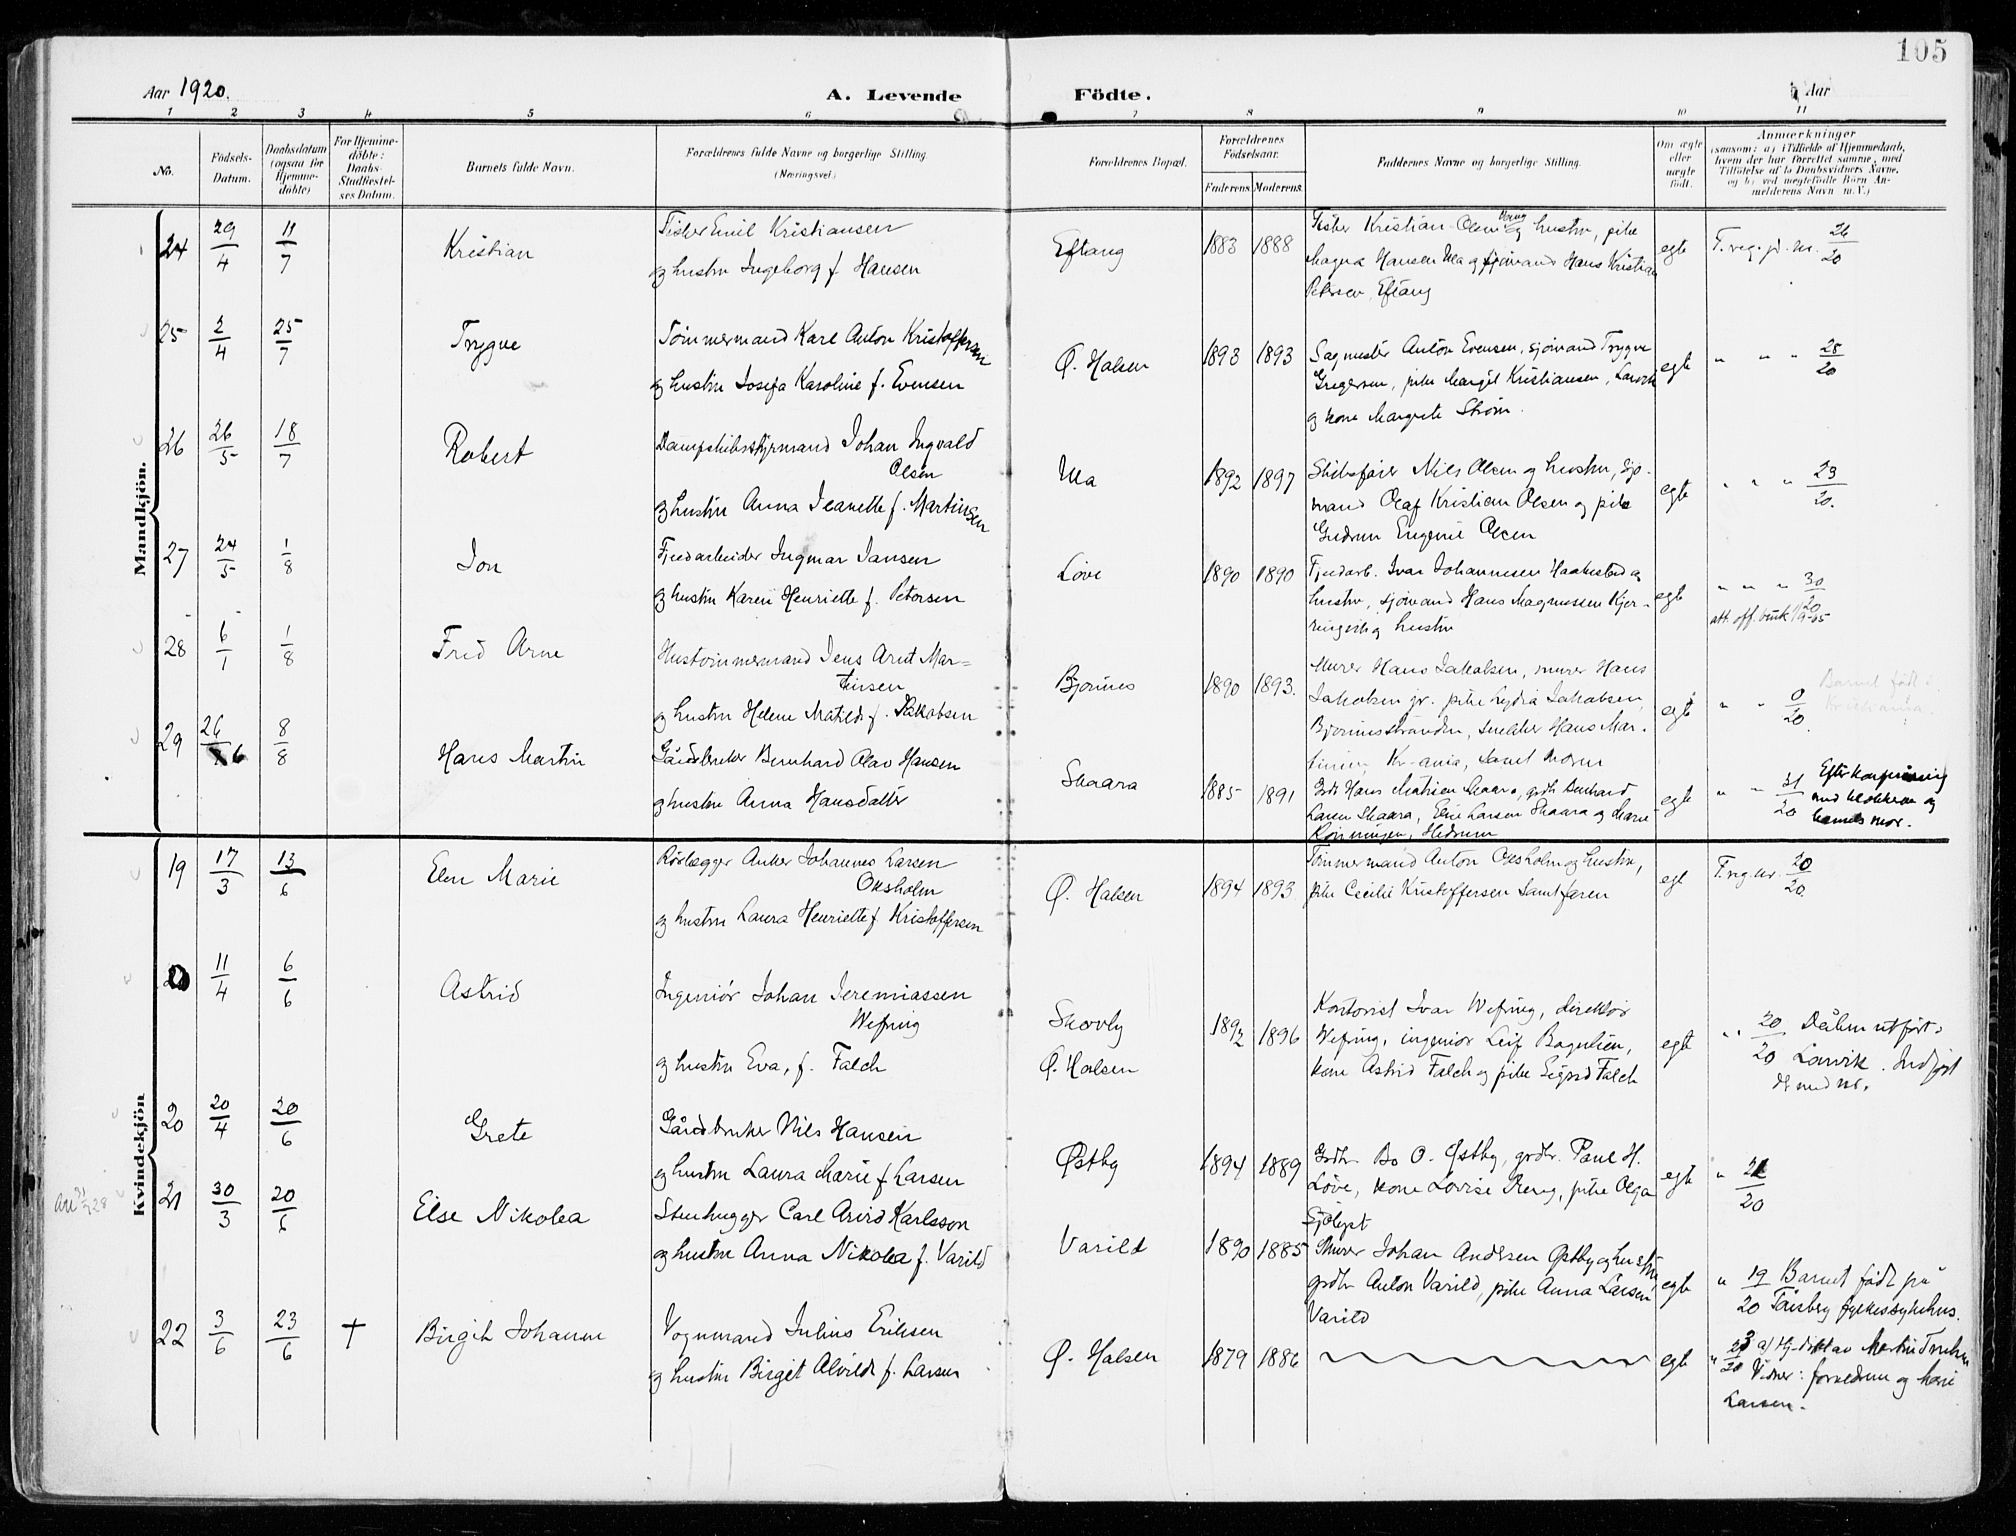 105
Aar 1920.
A. Levende
Födte.
Aar
1 2 3 4 5 6
7 8 9 10 11
No.
Födsels-
Datum.
Daabsdatum
(ogsaa for
Hjemme-
döbte)
For Hjemme-
döbte:
Daabs-
Stadfæstel-
ses Datum.
Barnets fulde Navn.
Forældrenes fulde Navne og borgerlige Stilling
(Næringsvei.)
Forældrenes Bopæl.
Forældrenes
Födselsaar.
Faderens Moderens.
Faddernes Navne og borgerlige Stilling.
Om ægte
eller
uægte
födt.
Anmærkninger
(saasom: a) i Tilfælde af Hjemmedaab,
hvem der har forrettet samme, med
Tilföielse af to Daabsvidners Navne,
og b) ved uægtefödte Börn An-
melderens Navn m.V.)
Mandkjön.
24 29/4 11/7 Kristian
Fisker Emil Kristiansen
og hustru Ingeborg f. Hansen
Eftang 1883 1888
Fisker Kristian Olsen og hustru, pike
Magna Hansen Ula og sjömand Hans Kristian
Petersen, Eftang
egte
26/20
25 2/4 25/7 Trygve
Tömmermand Karl Anton Kristoffersen
og hustru Josefa Karoline f. Evensen
Ø. Halsen 1893 1893
Sagmester Anton Evensen, sjömand Trygve
Gregersen, pike Margit Kristiansen, Larvik
og kone Margrete Ström.
egte " " " 28/20
26 26/5 18/7 Robert
Dampskibsstyrmand Johan Ingvald
Olsen
og hustru Anna Jeanette f. Martinsen
Ula 1892 1897
Skibsförer Nils Olsen og hustru, sjö-
mand Olaf Kristian Olsen og pike
Gudrun Eugenie Olsen
egte " " " 29/20.
27 24/5 1/8 Jon
Fjedarbeider Ingmar Jansen
og hustru Karen Henriette f. Petersen
Löve 1890 1890
Fjedarb. Ivar Johannesen Haakestad og
hustru, sjömand Hans Magnussen Kjer-
ringvik og hustru
egte " " " 30/20
att. off. bruk 1/9-65
28 6/1 1/8 Fred Arne
Hustömmermand Jens Arnt Mar-
tinsen
og hustru Helene Matilde f. Jakobsen
Bjönnes 1890 1893.
Murer Hans Jakobsen, murer Hans
Jakobsen jr. pike Lydia Jakobsen,
Bjönnesstranden, snekker Hans Mar-
tinsen, Kr-ania, samt moren
egte " " 0/20.
Barnet födt i
Kristiania.
29 26/6 8/8 Hans Martin
Gårdbruker Bernhard Olav Hansen
og hustru Anna Hansdatter
Skaara 1885 1891
Gdb Hans Mathisen Skaara, grdb. Bernhard
Larsen Skaara, Elise Larsen Skaara og Marie
Rönningen, Hedrum
egte " " 31/20
Efter konferering
med klokkeren og
barnets mor.
Kvindekjön
19 17/3 13/6 Elen Marie
Rörlægger Anker Johannes Larsen
Oksholm
og hustru Laura Henriette f Kristoffersen
Ø. Halsen 1894 1893
Tömmermand Anton Oksholm og hustru,
pike Cecilie Kristoffersen samt faren
egt
20/20.
20 11/4 6/6 Astrid
Ingeniör Johan Jeremiassen
Wefring
og hustru Eva, f. Falch
Skovly
Ø. Halsen
1892 1896
Kontorist Ivar Wefring, direktör
Wefring, ingeniör Leif Bagulien,
kone Astrid Falch og pike Sigrid Falch
egte " 20/20 Dåben utfört i
Larvik. Indfört
20 20/4 20/6 Grete
Gårdbruker Nils Hansen
og hustru Laura Marie f Larsen
Østby 1894 1889
Grdb. Bo O. Østby, grdb. Paul H.
Löve, kone Lovise Reng, pike Olga
Sjölyst
egte " 21/20
21 30/3 20/6 Else Nikolea
Stenhugger Carl Arvid Karlsson
og hustru Anna Nikolea f. Varild
Varild 1890 1885
Murer Johan Andersen Østby og hustru
grdbr Anton Varild, pike Anna Larsen
Varild
egte " 19/20 Barnet födt på
Tönsberg fylkessykehus.
22 3/6 23/6 † Birgit Johanne
Vognmand Julius Eriksen
og hustru Birgit Alvilde f. Larsen
Ø. Halsen 1879 1886
egte " 23/20
Vidner: forældrene og Marie
Larsen.